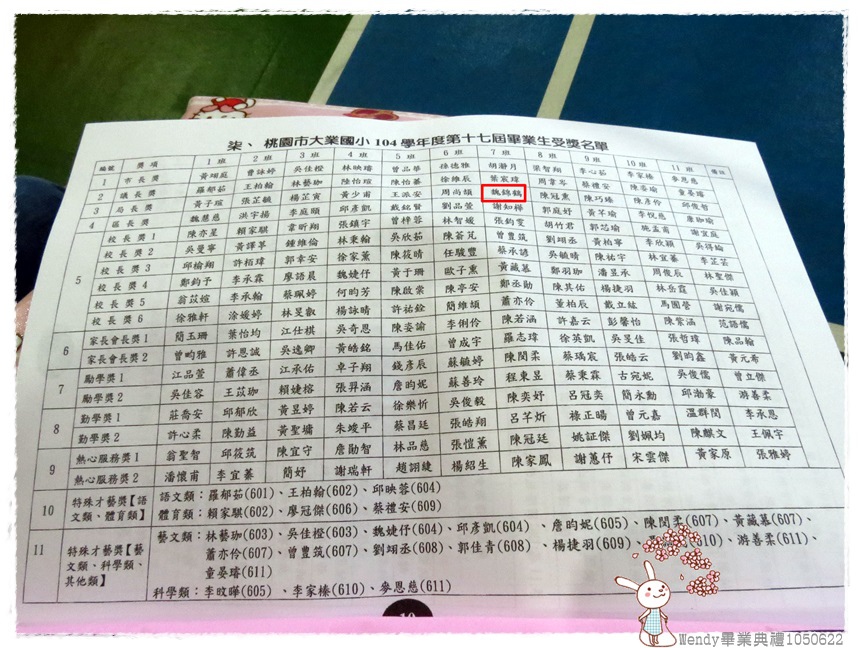 柒、桃園市大業國小104學年度第十七屆畢業生受獎名單
編號 獎項 1班 2班 3班 4班 5班 6班 7班 8班 9班 10班 11班 備註
1 市長獎 黃翊庭 曹詠婷 吳佳橙 林映璿 曾品華 孫德雅 胡瀞月 梁智翔 李心茹 李家榛 麥恩慈
2 議長獎 羅郁茹 王柏翰 林藝珈 陸怡瑄 陳怡蓁 徐維辰 葉宸瑋 周韋岑 蔡禮安 陳姿瑜 童晏璿
3 局長獎 黃子瑄 張芷毓 楊芷寅 黃少甫 王派安 周尚頡 魏錦鶴 陳冠熏 陳巧臻 陳彥伶 邱俊哲
4 區長獎 魏慧慈 洪宇揚 李庭頤 邱彥凱 戴銘賢 劉品萱 謝知樺 郭庭妤 黃芊瑜 李悅慈 唐珈瑜
5 校長獎1 陳亦星 賴家騏 韋昕翔 張鎮宇 曾梓蓉 林智媛 張鈞雯 胡竹君 郭芯瑜 施孟甫 謝宜庭
校長獎2 吳曼寧 黃譯葶 鍾維倫 林秉翰 吳欣茹 陳萮芃 曾豊筑 劉翊丞 黃柏寧 李欣穎 吳得翰
校長獎3 邱榆翔 許栢瑋 郭幸安 徐家薰 陳筱晴 任駿豐 蔡承諺 吳毓晴 陳祐宇 林宜蓁 李芷芸
校長獎4 鄭鈞予 李承霖 廖語晨 魏婕伃 黃于珊 歐子熏 黃葳慕 鄭羽珈 潘昱承 周俊辰 林聖傑
校長獎5 翁苡媗 李承翰 蔡珮婷 何昀芳 陳啟棠 陳亭安 鄭丞勛 陳其佑 楊捷羽 林岳霆 吳佳穎
校長獎6 徐雅軒 涂媛婷 林旻叡 楊詠晴 許祐銓 簡維頡 蕭亦伶 董柏辰 戴立紘 馬閤瑩 謝宛儒
6 家長會長獎1 簡玉珊 葉怡均 江仕祺 吳奇恩 陳姿諭 李俐伶 陳若涵 許嘉云 彭馨怡 陳紫涵 范語儒
家長會長獎2 曾畇雅 許恩誠 吳逸卿 黃皓銘 馬佳佑 曾成宇 羅志瑋 徐英凱 吳旻佳 張哲瑋 陳品翰
7 勵學獎1 江品萱 蕭偉丞 江承佑 卓子翔 錢彥辰 蘇毓婷 陳閔柔 蔡瑀宸 張皓云 劉昀鑫 黃元希
勵學獎2 吳佳容 王苡珈 賴婕榕 張羿涵 詹昀妮 蘇善玲 程東昱 蔡秉霖 古宛妮 吳俊儒 曾立傑
8 勤學獎1 莊喬安 邱郁欣 黃昱婷 陳若云 徐樂忻 吳俊毅 陳奕妤 呂冠奕 簡永勳 邱渤豪 游善柔
勤學獎2 許心柔 陳勤益 黃聖墉 朱竣平 蔡昌廷 張皓翔 呂芊炘 祿正暘 曾元嘉 溫群閔 李承恩
9 熱心服務獎1 翁聖智 邱筱筑 陳宜守 詹勛智 林品慈 張愷薰 陳冠廷 姚証傑 劉姵均 陳麒文 王佩宇
熱心服務獎2 潘懷甫 李宜蓁 簡妤 謝瑞軒 趙翊緁 楊紹生 陳家鳳 謝蕙伃 宋雲傑 黃家原 張雅婷
10 特殊才藝獎【語文類、體育類】 語文類：羅郁茹(601)、王柏翰(602)、邱映蓉(604)
體育類：賴家騏(602)、廖冠傑(606)、蔡禮安(609)
11 特殊才藝獎【藝文類、科學類、其他類】 藝文類：林藝珈(603)、吳佳橙(603)、魏婕伃(604)、邱彥凱(604)、詹昀妮(605)、陳閔柔(607)、黃葳慕(607)、
蕭亦伶(607)、曾豊筑(607)、劉翊丞(608)、郭佳青(608)、楊捷羽(609)、 610)、游善柔(611)、
童晏璿(611)
科學類：李旼曄(605)、李家榛(610)、麥恩慈(611)
Wendy畢業典禮1050622